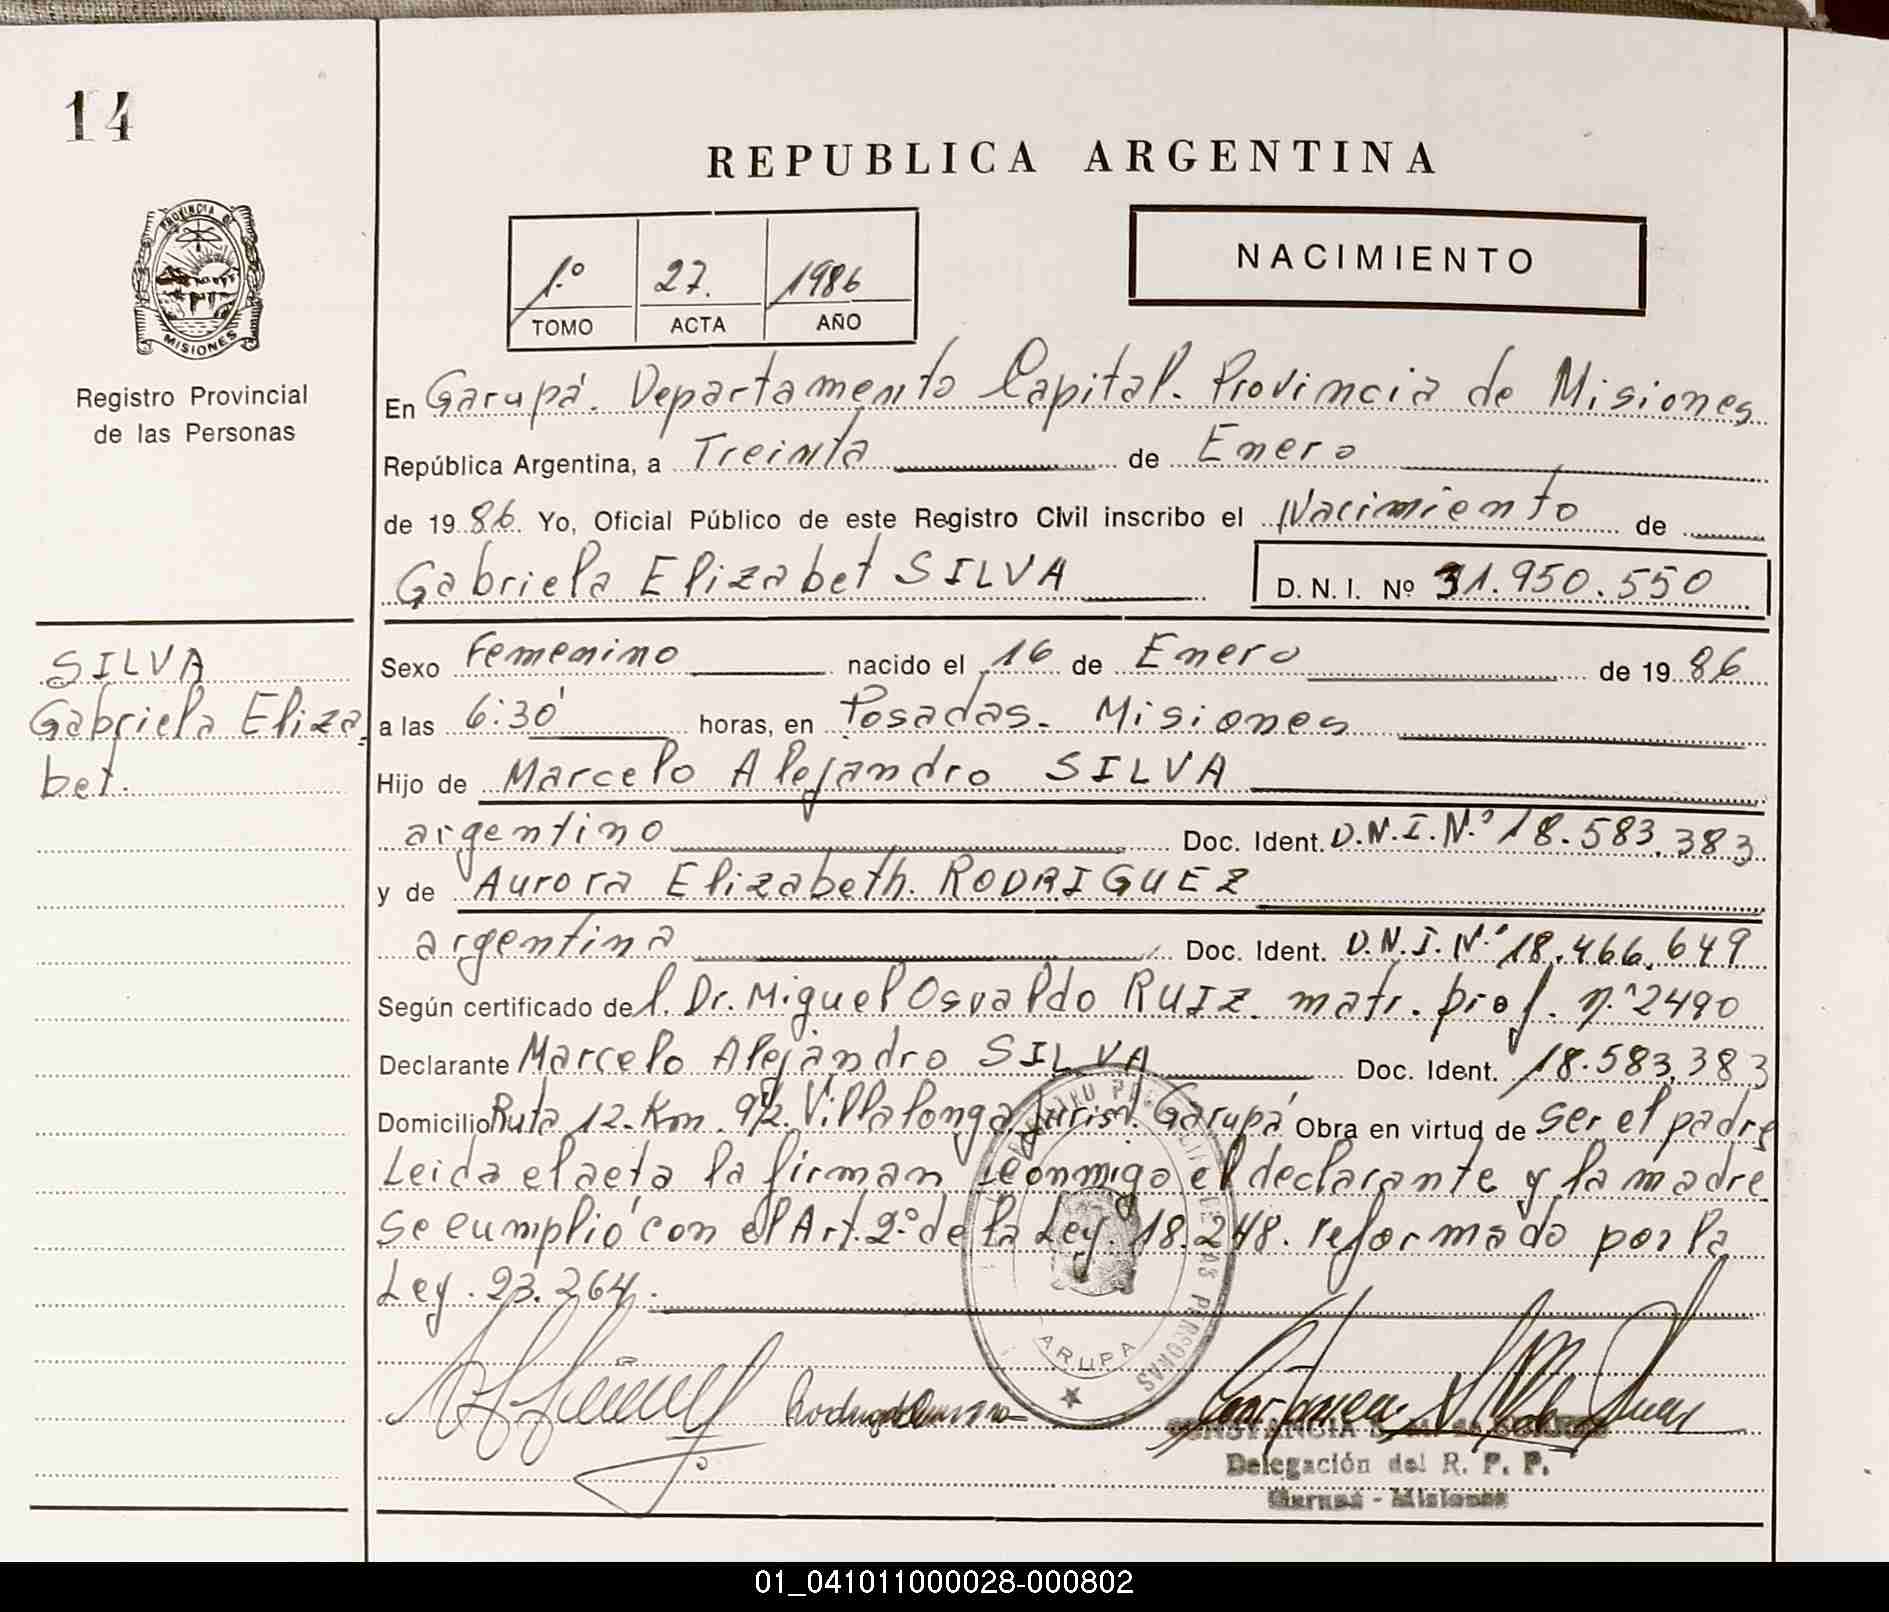 14
REPUBLICA ARGENTINA
PROVINCIA DE
MISIONES
Registro Provincial
de las Personas
1.º 27. 1986
TOMO ACTA AÑO
NACIMIENTO
En Garupá. Departamento Capital. Provincia de Misiones
República Argentina, a Treinta de Enero
de 1986. Yo, Oficial Público de este Registro Civil inscribo el Nacimiento de
Gabriela Elizabet SILVA D. N. I. Nº 31.950.550
SILVA
Gabriela Eliza
bet.
Sexo Femenino nacido el 16 de Enero de 1986
a las 6:30 horas, en Posadas - Misiones
Hijo de Marcelo Alejandro SILVA
argentino Doc. Ident. D.N.I.N.º 18.583.383
y de Aurora Elizabeth. RODRIGUEZ
argentina Doc. Ident. D.N.I.N.º 18.466.649
Según certificado del. Dr. Miguel Osvaldo RUIZ. matr. prof. n.º 2490
Declarante Marcelo Alejandro SILVA Doc. Ident. 18.583.383
Domicilio Ruta 12-Km. 9½. Villalonga, Jurisd. Garupá Obra en virtud de ser el padre
Leida el acta la firman conmigo el declarante y la madre
se cumplió con el Art. 2.º de la Ley 18.248. reformado por la
Ley. 23.264.
REGISTRO PROVINCIAL DE LAS PERSONAS
GARUPA
Delegación del R. P. P.
Garupá - Misiones
01_041011000028-000802